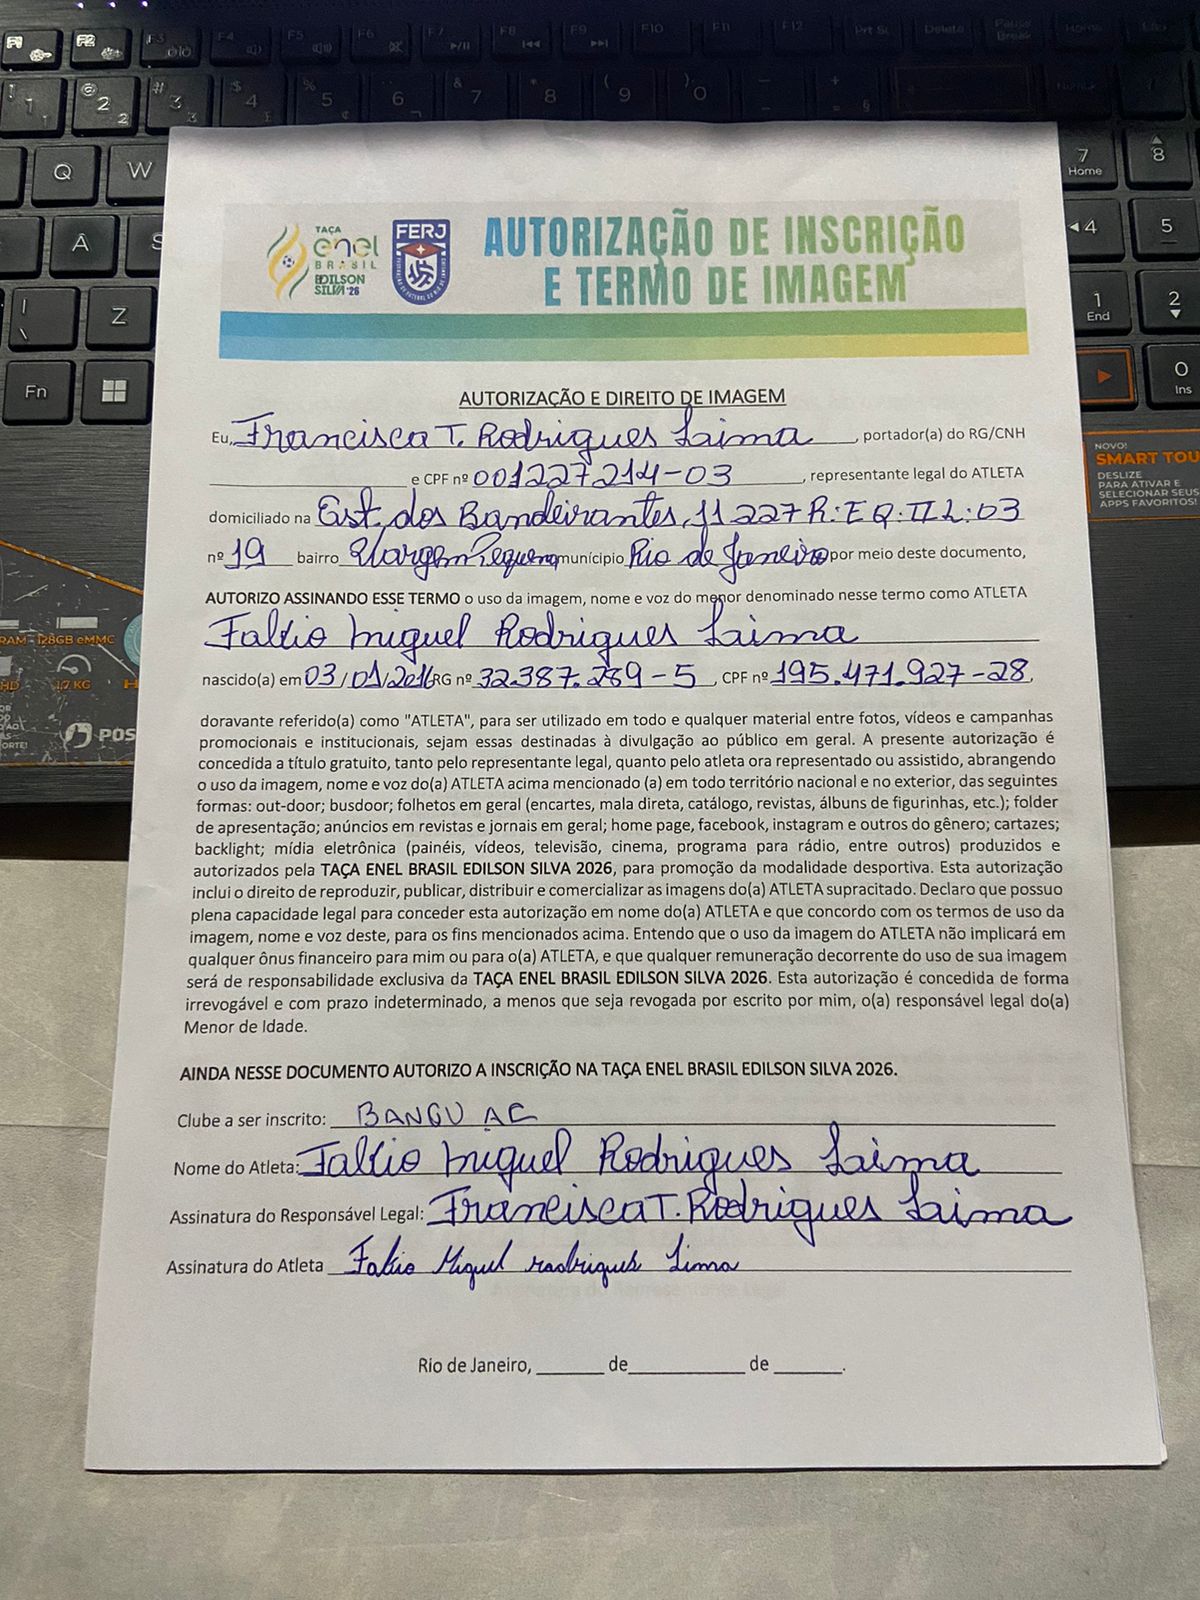 TAÇA
enel
BRASIL
EDILSON
SILVA '26
FERJ
AUTORIZAÇÃO DE INSCRIÇÃO
E TERMO DE IMAGEM
AUTORIZAÇÃO E DIREITO DE IMAGEM
Eu, Francisca T. Rodrigues Laima, portador(a) do RG/CNH
e CPF nº 001227214-03, representante legal do ATLETA
domiciliado na Est. dos Bandeirantes, 11227 R: E Q: II L: 03
nº 19 bairro Vargem Pequena município Rio de Janeiro por meio deste documento,
AUTORIZO ASSINANDO ESSE TERMO o uso da imagem, nome e voz do menor denominado nesse termo como ATLETA
Miguel Rodrigues Laima
nascido(a) em 03/01/2016 RG nº 32.387.289-5, CPF nº 195.471.927-28,
doravante referido(a) como "ATLETA", para ser utilizado em todo e qualquer material entre fotos, vídeos e campanhas
promocionais e institucionais, sejam essas destinadas à divulgação ao público em geral. A presente autorização é
concedida a título gratuito, tanto pelo representante legal, quanto pelo atleta ora representado ou assistido, abrangendo
o uso da imagem, nome e voz do(a) ATLETA acima mencionado (a) em todo território nacional e no exterior, das seguintes
formas: out-door; busdoor; folhetos em geral (encartes, mala direta, catálogo, revistas, álbuns de figurinhas, etc.); folder
de apresentação; anúncios em revistas e jornais em geral; home page, facebook, instagram e outros do gênero; cartazes;
backlight; mídia eletrônica (painéis, vídeos, televisão, cinema, programa para rádio, entre outros) produzidos e
autorizados pela TAÇA ENEL BRASIL EDILSON SILVA 2026, para promoção da modalidade desportiva. Esta autorização
inclui o direito de reproduzir, publicar, distribuir e comercializar as imagens do(a) ATLETA supracitado. Declaro que possuo
plena capacidade legal para conceder esta autorização em nome do(a) ATLETA e que concordo com os termos de uso da
imagem, nome e voz deste, para os fins mencionados acima. Entendo que o uso da imagem do ATLETA não implicará em
qualquer ônus financeiro para mim ou para o(a) ATLETA, e que qualquer remuneração decorrente do uso de sua imagem
será de responsabilidade exclusiva da TAÇA ENEL BRASIL EDILSON SILVA 2026. Esta autorização é concedida de forma
irrevogável e com prazo indeterminado, a menos que seja revogada por escrito por mim, o(a) responsável legal do(a)
Menor de Idade.
AINDA NESSE DOCUMENTO AUTORIZO A INSCRIÇÃO NA TAÇA ENEL BRASIL EDILSON SILVA 2026.
Clube a ser inscrito: BANGU AC
Nome do Atleta: Miguel Rodrigues Laima
Assinatura do Responsável Legal: Francisca T. Rodrigues Laima
Assinatura do Atleta Miguel rodrigues Lima
Rio de Janeiro, ______ de__________ de ______.
NOVO!
SMART TOU
DESLIZE
PARA ATIVAR E
SELECIONAR SEUS
APPS FAVORITOS!
128GB eMMC
1,7 KG
POS